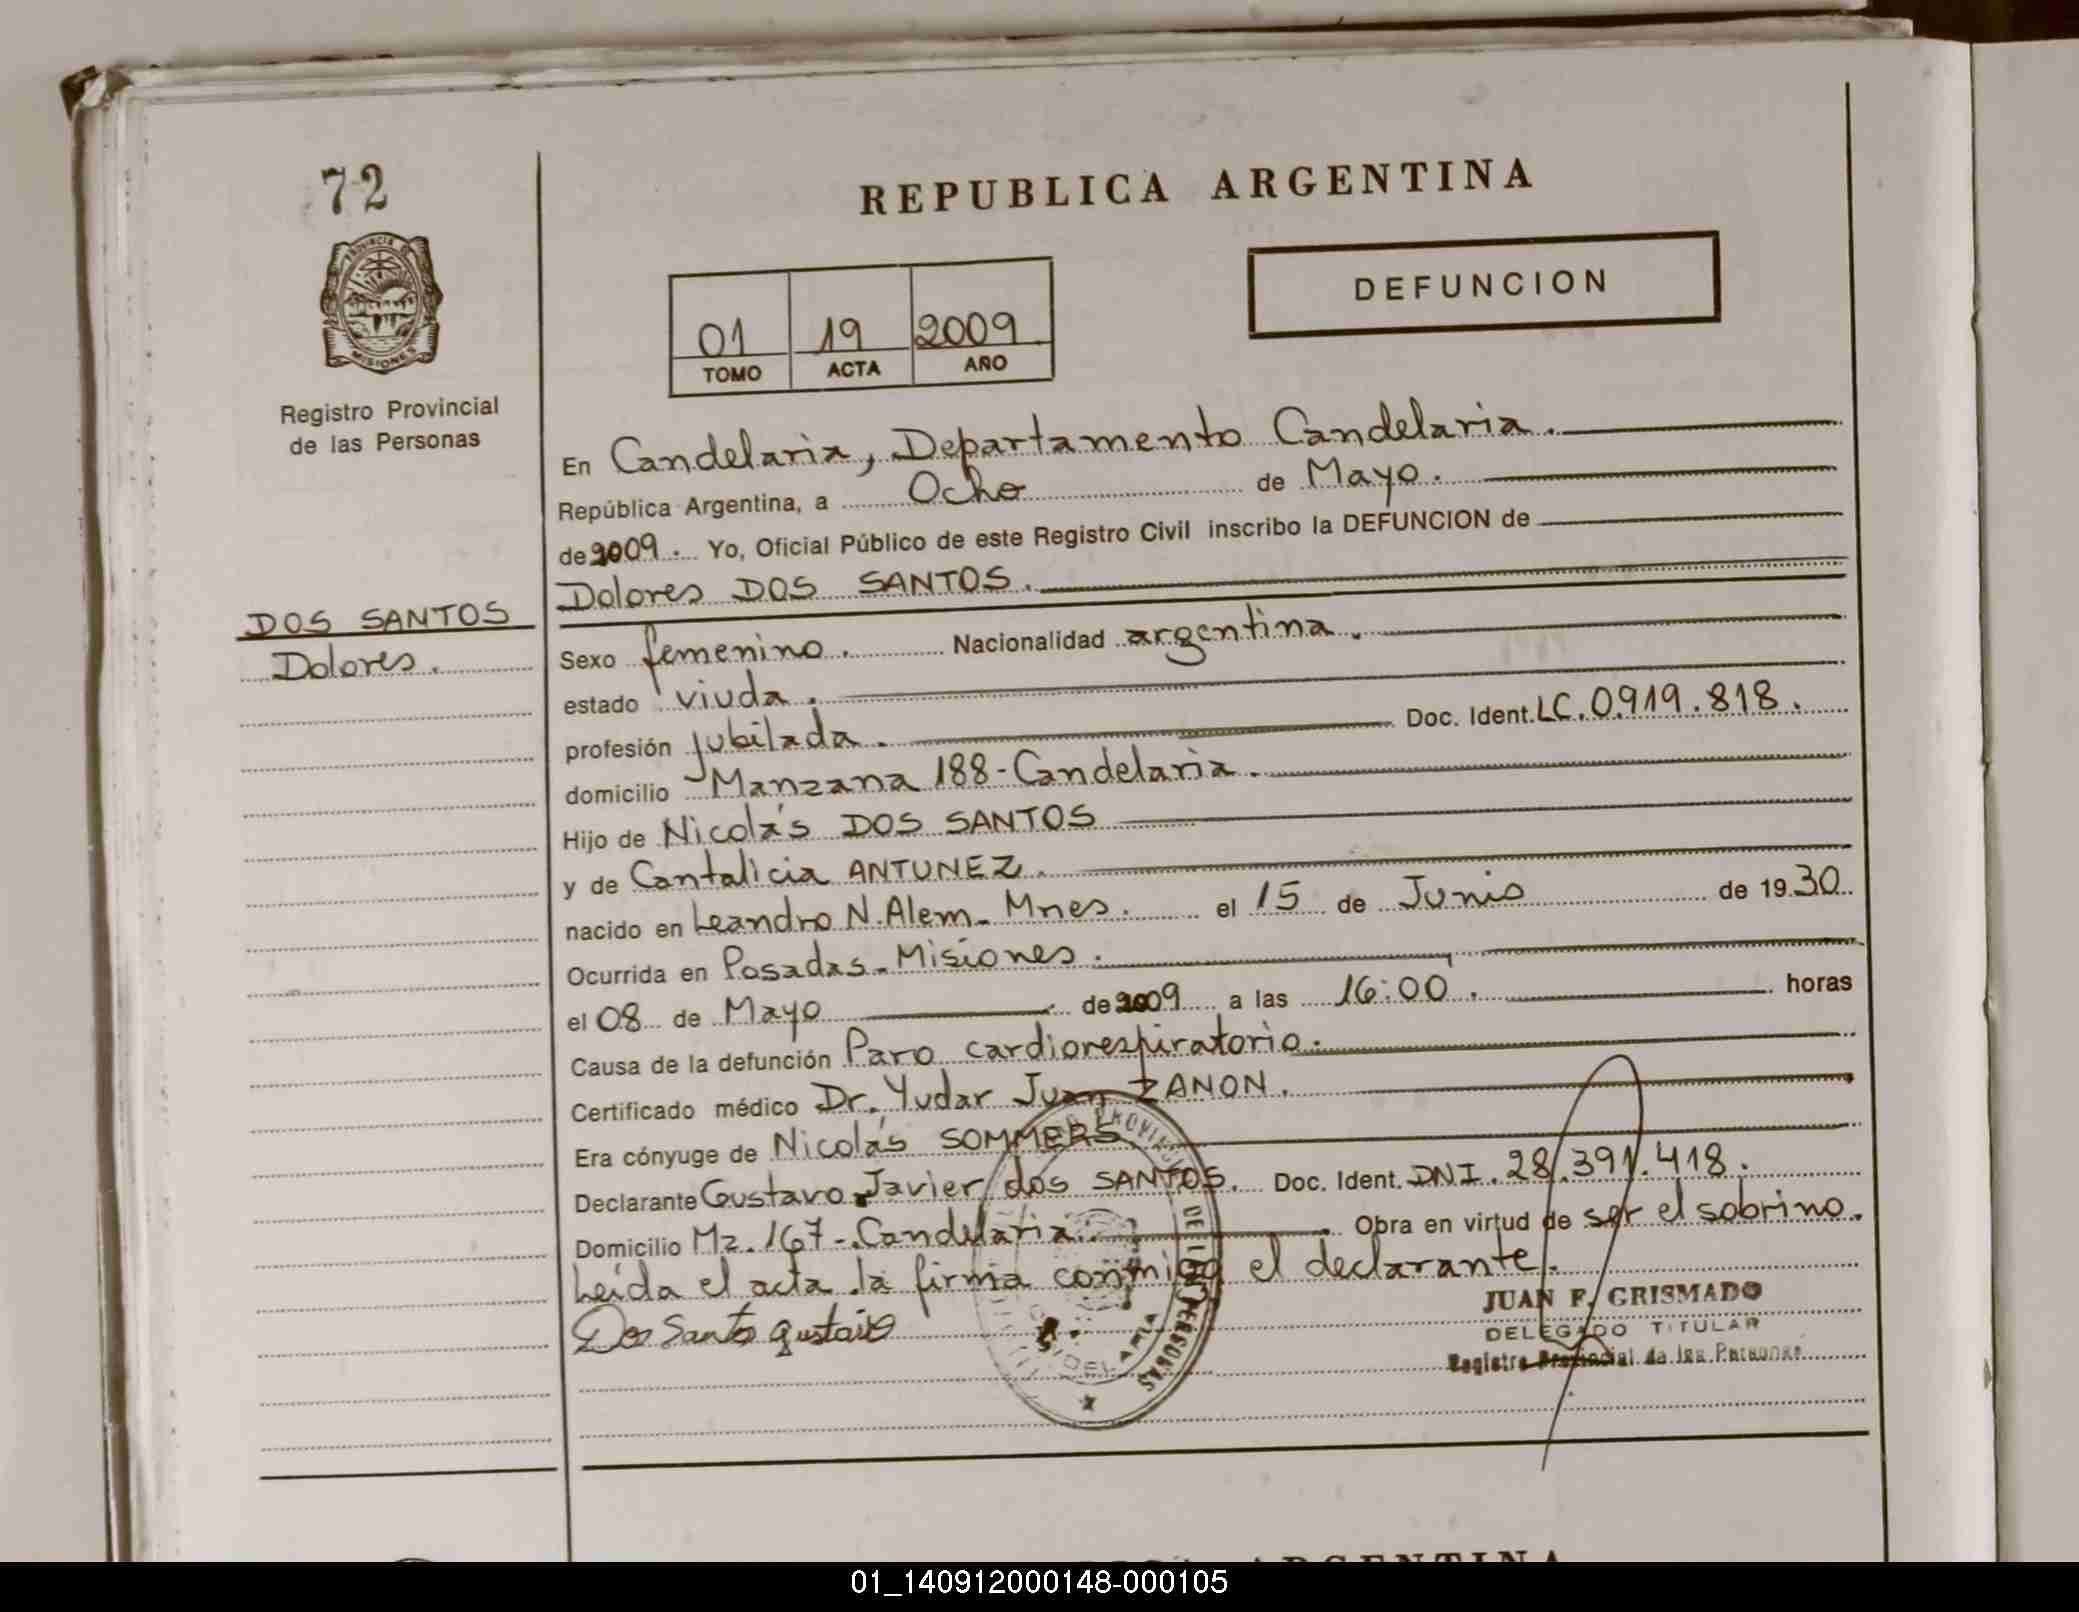 72
PROVINCIA DE
MISIONES
Registro Provincial
de las Personas
DOS SANTOS
Dolores.
REPUBLICA ARGENTINA
DEFUNCION
01 19 2009
TOMO ACTA AÑO
En Candelaria, Departamento Candelaria.
República Argentina, a Ocho de Mayo.
de 2009. Yo, Oficial Público de este Registro Civil inscribo la DEFUNCION de
Dolores DOS SANTOS.
Sexo femenino. Nacionalidad argentina.
estado viuda.
profesión jubilada. Doc. Ident. LC. 0.919.818.
domicilio Manzana 188-Candelaria.
Hijo de Nicolás DOS SANTOS
y de Cantalicia ANTUNEZ.
nacido en Leandro N. Alem- Mnes. el 15 de Junio de 1930
Ocurrida en Posadas-Misiones.
el 08 de Mayo de 2009 a las 16:00. horas
Causa de la defunción Paro cardiorespiratorio.
Certificado médico Dr. Yudar Juan ZANON.
Era cónyuge de Nicolás SOMMERS.
Declarante Gustavo Javier dos SANTOS. Doc. Ident. DNI. 28.391.418.
Domicilio Mz. 167-Candelaria. Obra en virtud de ser el sobrino.
Leída el acta la firma conmigo el declarante.
Dos Santos gustavo
JUAN F. GRISMADO
DELEGADO TITULAR
Registro Provincial de las Personas
ARGENTINA
01_140912000148-000105